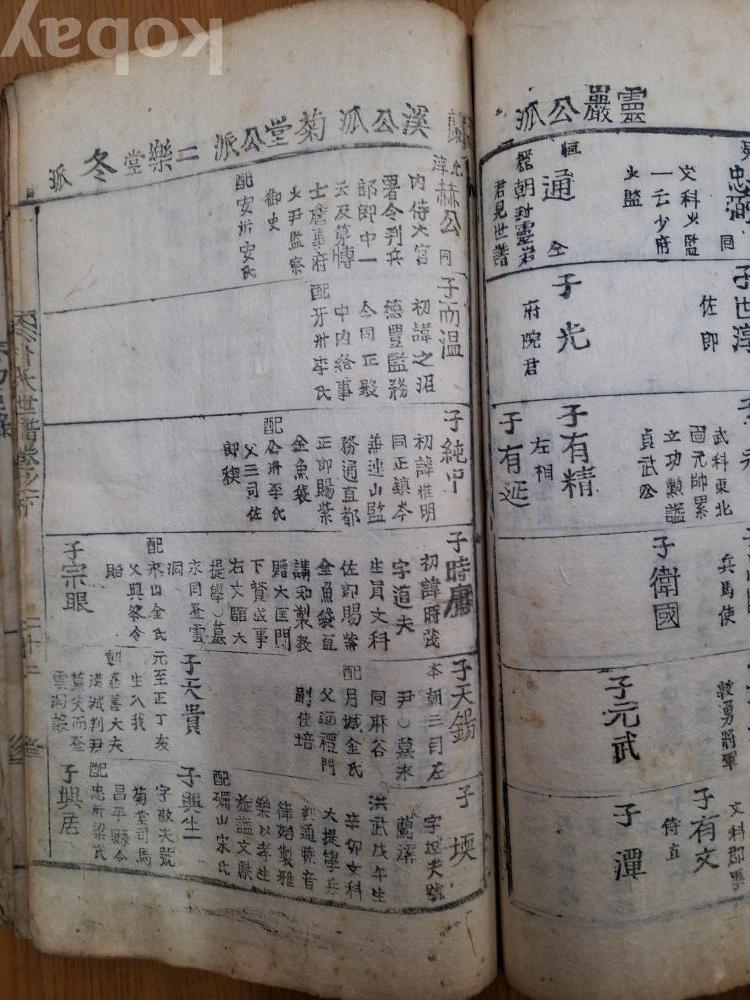 kobay
靈巖公派
文科少監
一云少府
少監
通
朝封靈岩
君見世譜
子世淳
佐郎
子光
府院君
武科東北
面元帥累
立功勳謚
貞武公
子有精
左相
子有延
兵馬使
子衛國
毅勇將軍
子元武
文科郡事
子有文
侍直
子潭
蘭溪公派
菊堂公派
二樂堂冬派
赫公
同
內侍大官
署令判兵
部郎中一
云及第博
士詹事府
少尹監察
御史
配安州安氏
子而溫
初諱之沼
德豐監務
令同正殿
中內給事
配牙州李氏
子純中
初諱惟明
同正鎭岑
兼連山監
務通直都
正郎賜紫
金魚袋
配公州李氏
父三司佐
郎稧
子時庸
初諱時茂
字道夫
生員文科
佐郎賜紫
金魚袋直
講知製敎
贈大匡門
下贊成事
右文館大
提學○墓
永同荃雲
洞
配禾山金氏
父興黎令
貽
子宗眼
子天錫
本朝三司左
尹○墓來
同麻谷
配月城金氏
父通禮門
副使培
子天貴
元至正丁亥
生入我
朝嘉善大夫
漢城判尹
墓失而登
雲洞設
子堧
字坦夫號
蘭溪
洪武戊午生
辛卯文科
大提學兵
判通曉音
律始製雅
樂以孝生
旌謚文獻
配礪山宋氏
子興生
字敬夫號
菊堂司馬
昌平縣令
配忠州梁氏
子興居
朴氏世譜卷之一
二十二